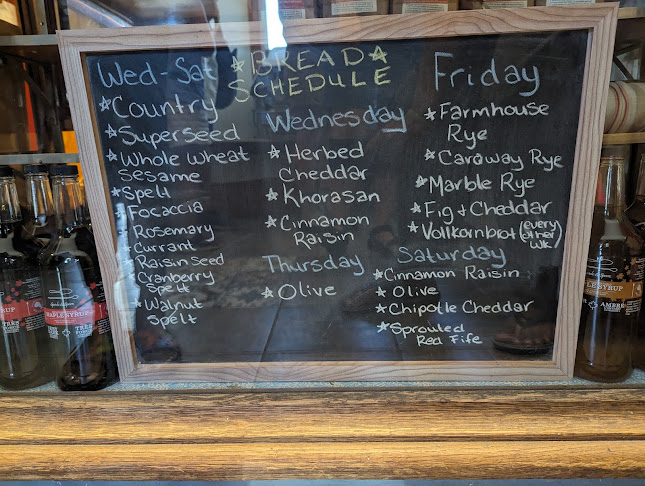 BREAD
SCHEDULE
Wed-Sat
Country
Superseed
Whole Wheat
Sesame
Spelt
Focaccia
Rosemary
Currant
Raisin Seed
Cranberry
Spelt
Walnut
Spelt
Wednesday
Herbed
Cheddar
Khorasan
Cinnamon
Raisin
Thursday
Olive
Friday
Farmhouse
Rye
Caraway Rye
Marble Rye
Fig & Cheddar
Vollkornbrot (every
other
wk.)
Saturday
Cinnamon Raisin
Olive
Chipotle Cheddar
Sprouted
Red Fife
MAPLE SYRUP
SYRUP
AMBRE